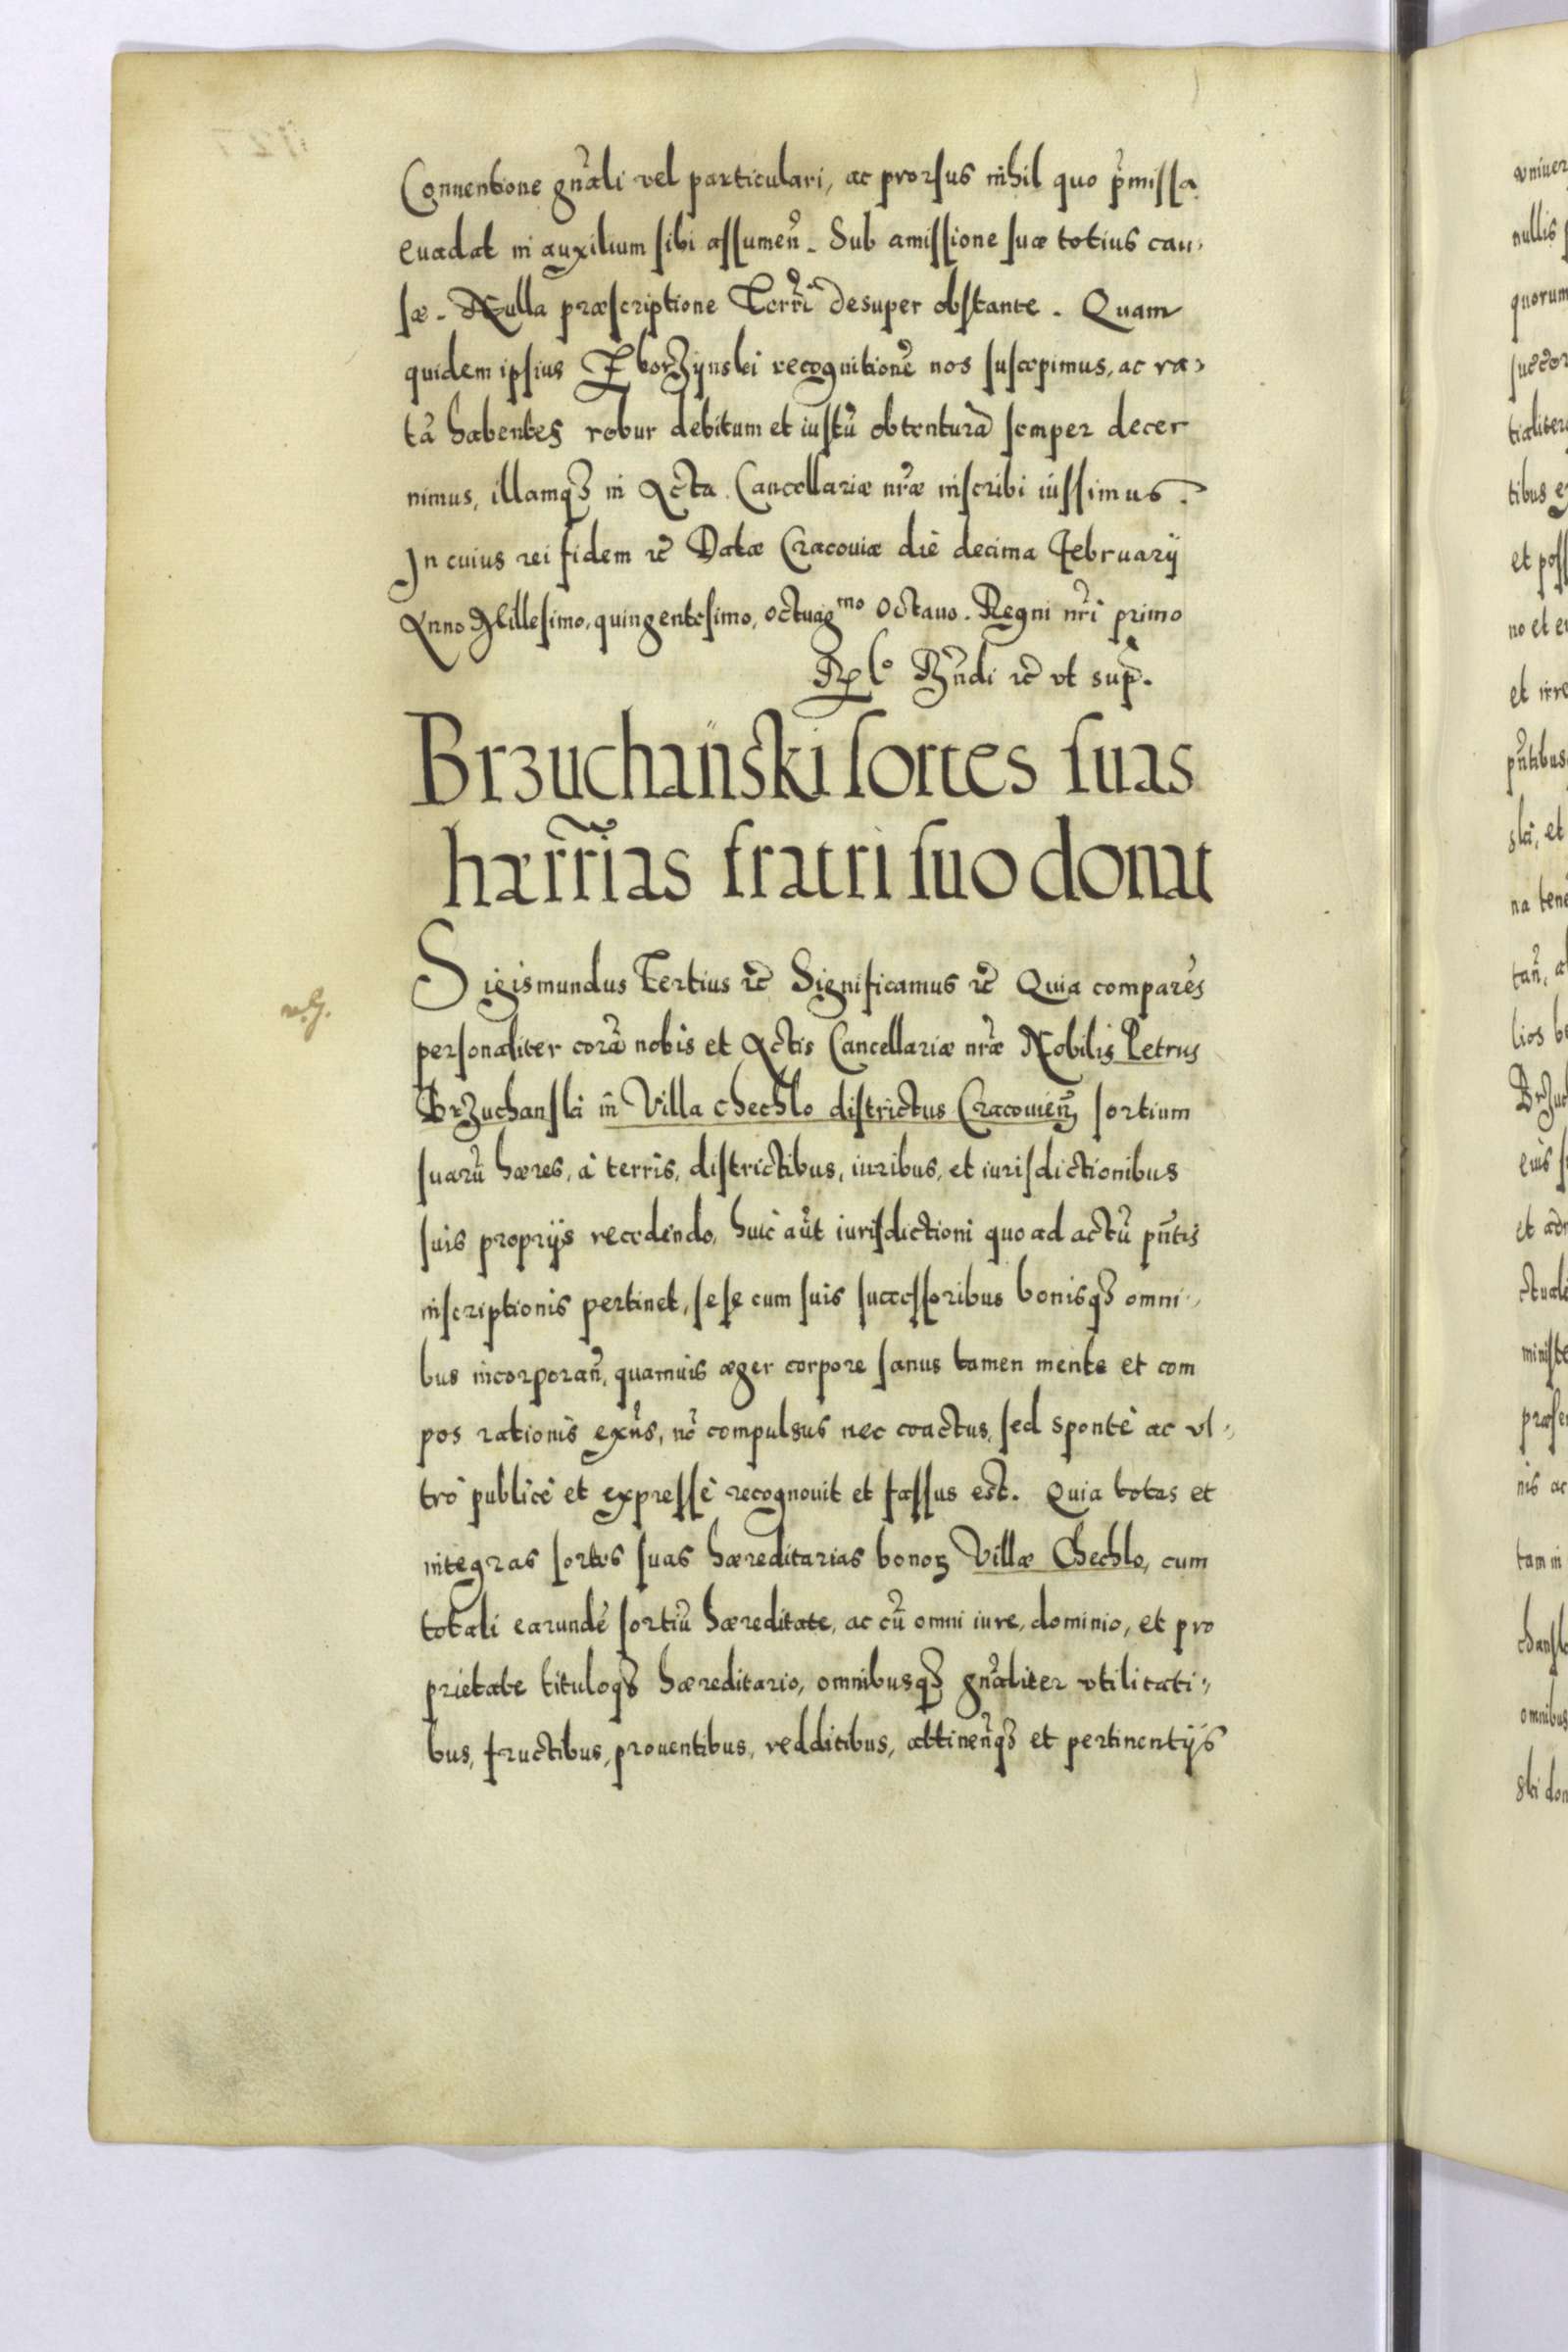 Conuentione gnãli vel particulari, ac prorsus nihil quo pr̃missa
euadat in auxilium sibi assumeñ. Sub amissione suæ totius cau,
sæ. Nulla præscriptione Terrĩ desuper obstante. Quam
quidem ipsius Zborzÿnski recognitionẽ nos suscepimus, ac ra,
tã habentes robur debitum et iustũ obtenturã semper decer
nimus, illamqꝫ in Acta Cancellariæ nr̃æ inscribi iussimus.
In cuius rei fidem ꝛc̃ Datæ Cracouiæ die decima Februarij
Anno Millesimo, quingentesimo, octuagᵐᵒ octauo. Regni nr̃i primo
Rñdi ꝛc̃ vt sup̃.
Brzuchański sortes suas
hærr̃ias fratri suo donat
Sigismundus Tertius ꝛc̃ Significamus ꝛc̃ Quia comparẽs
personaliter corã nobis et Actis Cancellariæ nr̃æ Nobilis Petrus
Brzuchanski in Villa Chechlo districtus Cracouieñ sortium
suarũ hæres, à terris, districtibus, iuribus, et iurisdictionibus
suis proprijs recedendo, huic aũt iurisdictioni quo ad actũ pñtis
inscriptionis pertinet, sese cum suis successoribus bonisqꝫ omni,
bus incorporañ, quamuis æger corpore sanus tamen mente et com
pos rationis exñs, nõ compulsus nec coactus, sed sponte ac vl,
trò publicè et expressè recognouit et fassus est. Quia totas et
integras sortes suas hæreditarias bonoꝝ Villæ Chechlo, cum
totali earundẽ sortiũ hæreditate, ac cũ omni iure, dominio, et pro
prietate tituloqꝫ hæreditario, omnibusqꝫ gnãliter vtilitati,
bus, fructibus, prouentibus, redditibus, attineñqꝫ et pertinentijs